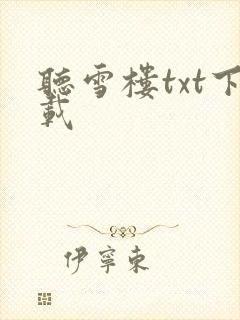 聽雪樓txt下
載
伊寧東